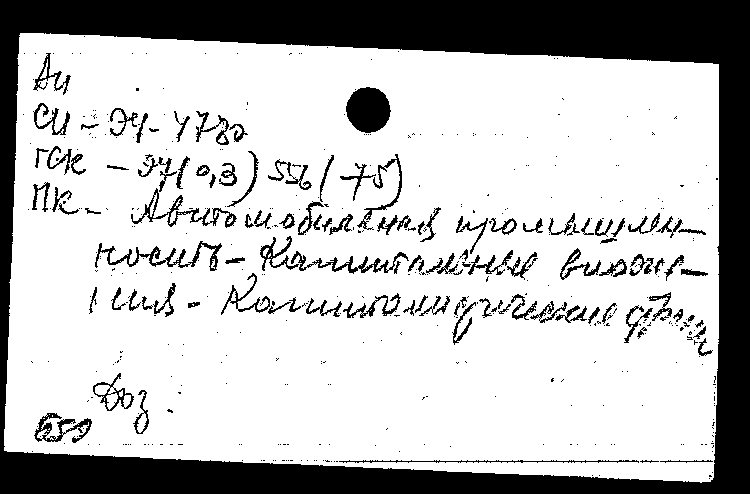 Ан
СИ - ЭЧ - 4730
ГСК - Э7(0,3) 556 (-75)
ПК - Автомобильная промышлен-
ность - Капитальные вложе-
ния - Капиталистические страны
Доз.
659